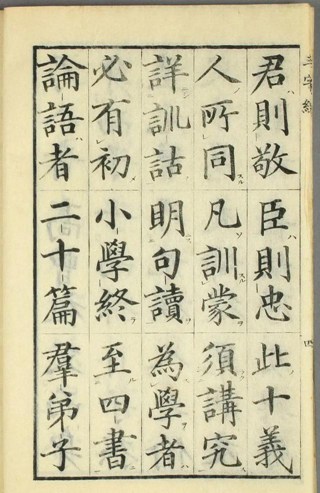 君則敬臣則忠此十義
人所同凡訓蒙須講究
詳訓詁明句讀為學者
必有初小學終至四書
論語者二十篇羣弟子